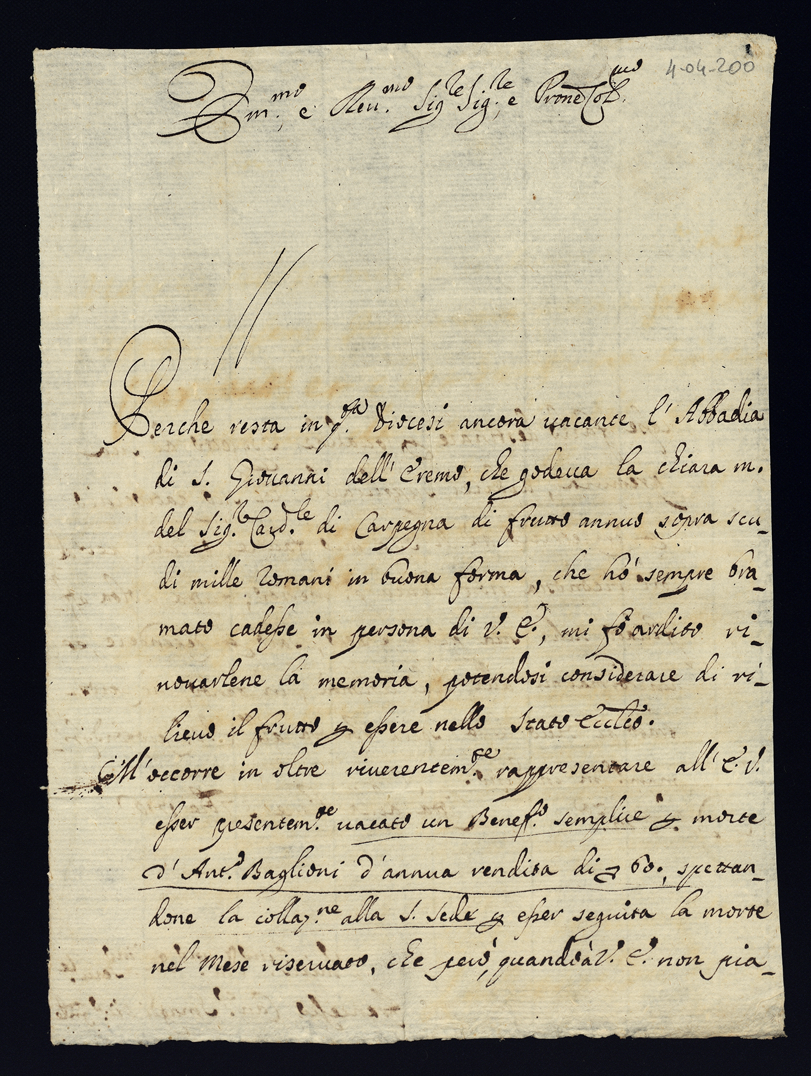 4-04-200
Em.mo e Reu.mo Sig.re Sig.re, e Prone Col.mo
Perche resta in q.ta Diocesi ancora uacante l'Abbadia
di S. Giouanni dell'Eremo, che godeua la chiara m.
del Sig.re Card.le di Carpegna di frutto annuo sopra scu-
di mille Romani in buona forma, che hò sempre bra-
mato cadesse in persona di V. E., mi fò ardito ri-
nouarlene la memoria, potendosi considerare di ri-
lieuo il frutto p essere nello Stato Eccl.co.
M'occorre in oltre riuerentem.te rappresentare all'E. V.
esser presentem.te uacato un Benef.o semplice p morte
d'Ant.o Baglioni d'annua rendita di 60., spettan-
done la collaz.ne alla S. Sede p esser seguita la morte
nel Mese riseruato, che però, quando à V. E. non pia-